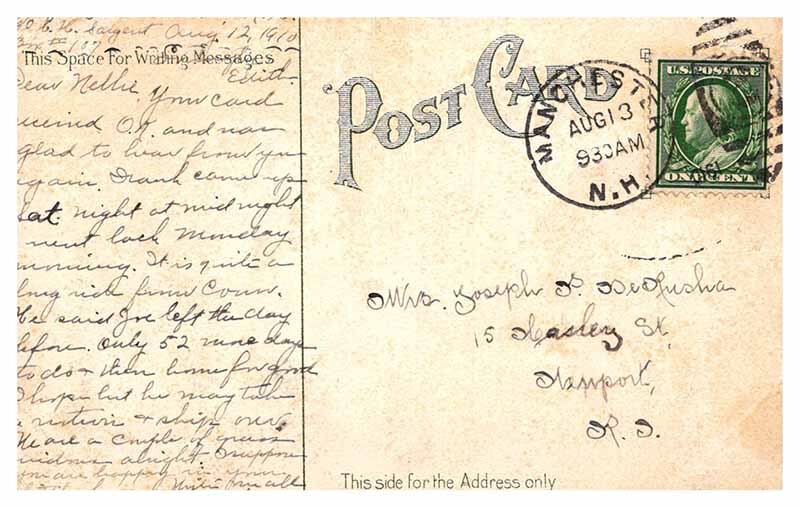 Sargent Aug 12, 1910
This Space for Writing Messages
Edith
Dear Nellie. Your card
received O.K. and was
glad to hear from you
again. Frank came up
Sat. night at midnight
went back Monday
morning. It is quite a
long ride from Conn.
He said Joe left the day
before. Only 52 more days
to do & then home for good
I hope but he may take
a notion & ship over.
We are a couple of grass
widows alright I suppose
you are happy in your
Write me all
POST CARD
MANCHESTER
AUG 13
930AM
N.H.
U.S. POSTAGE
ONE CENT
Mrs. Joseph P.
15 St,
Newport,
R. I.
This side for the Address only